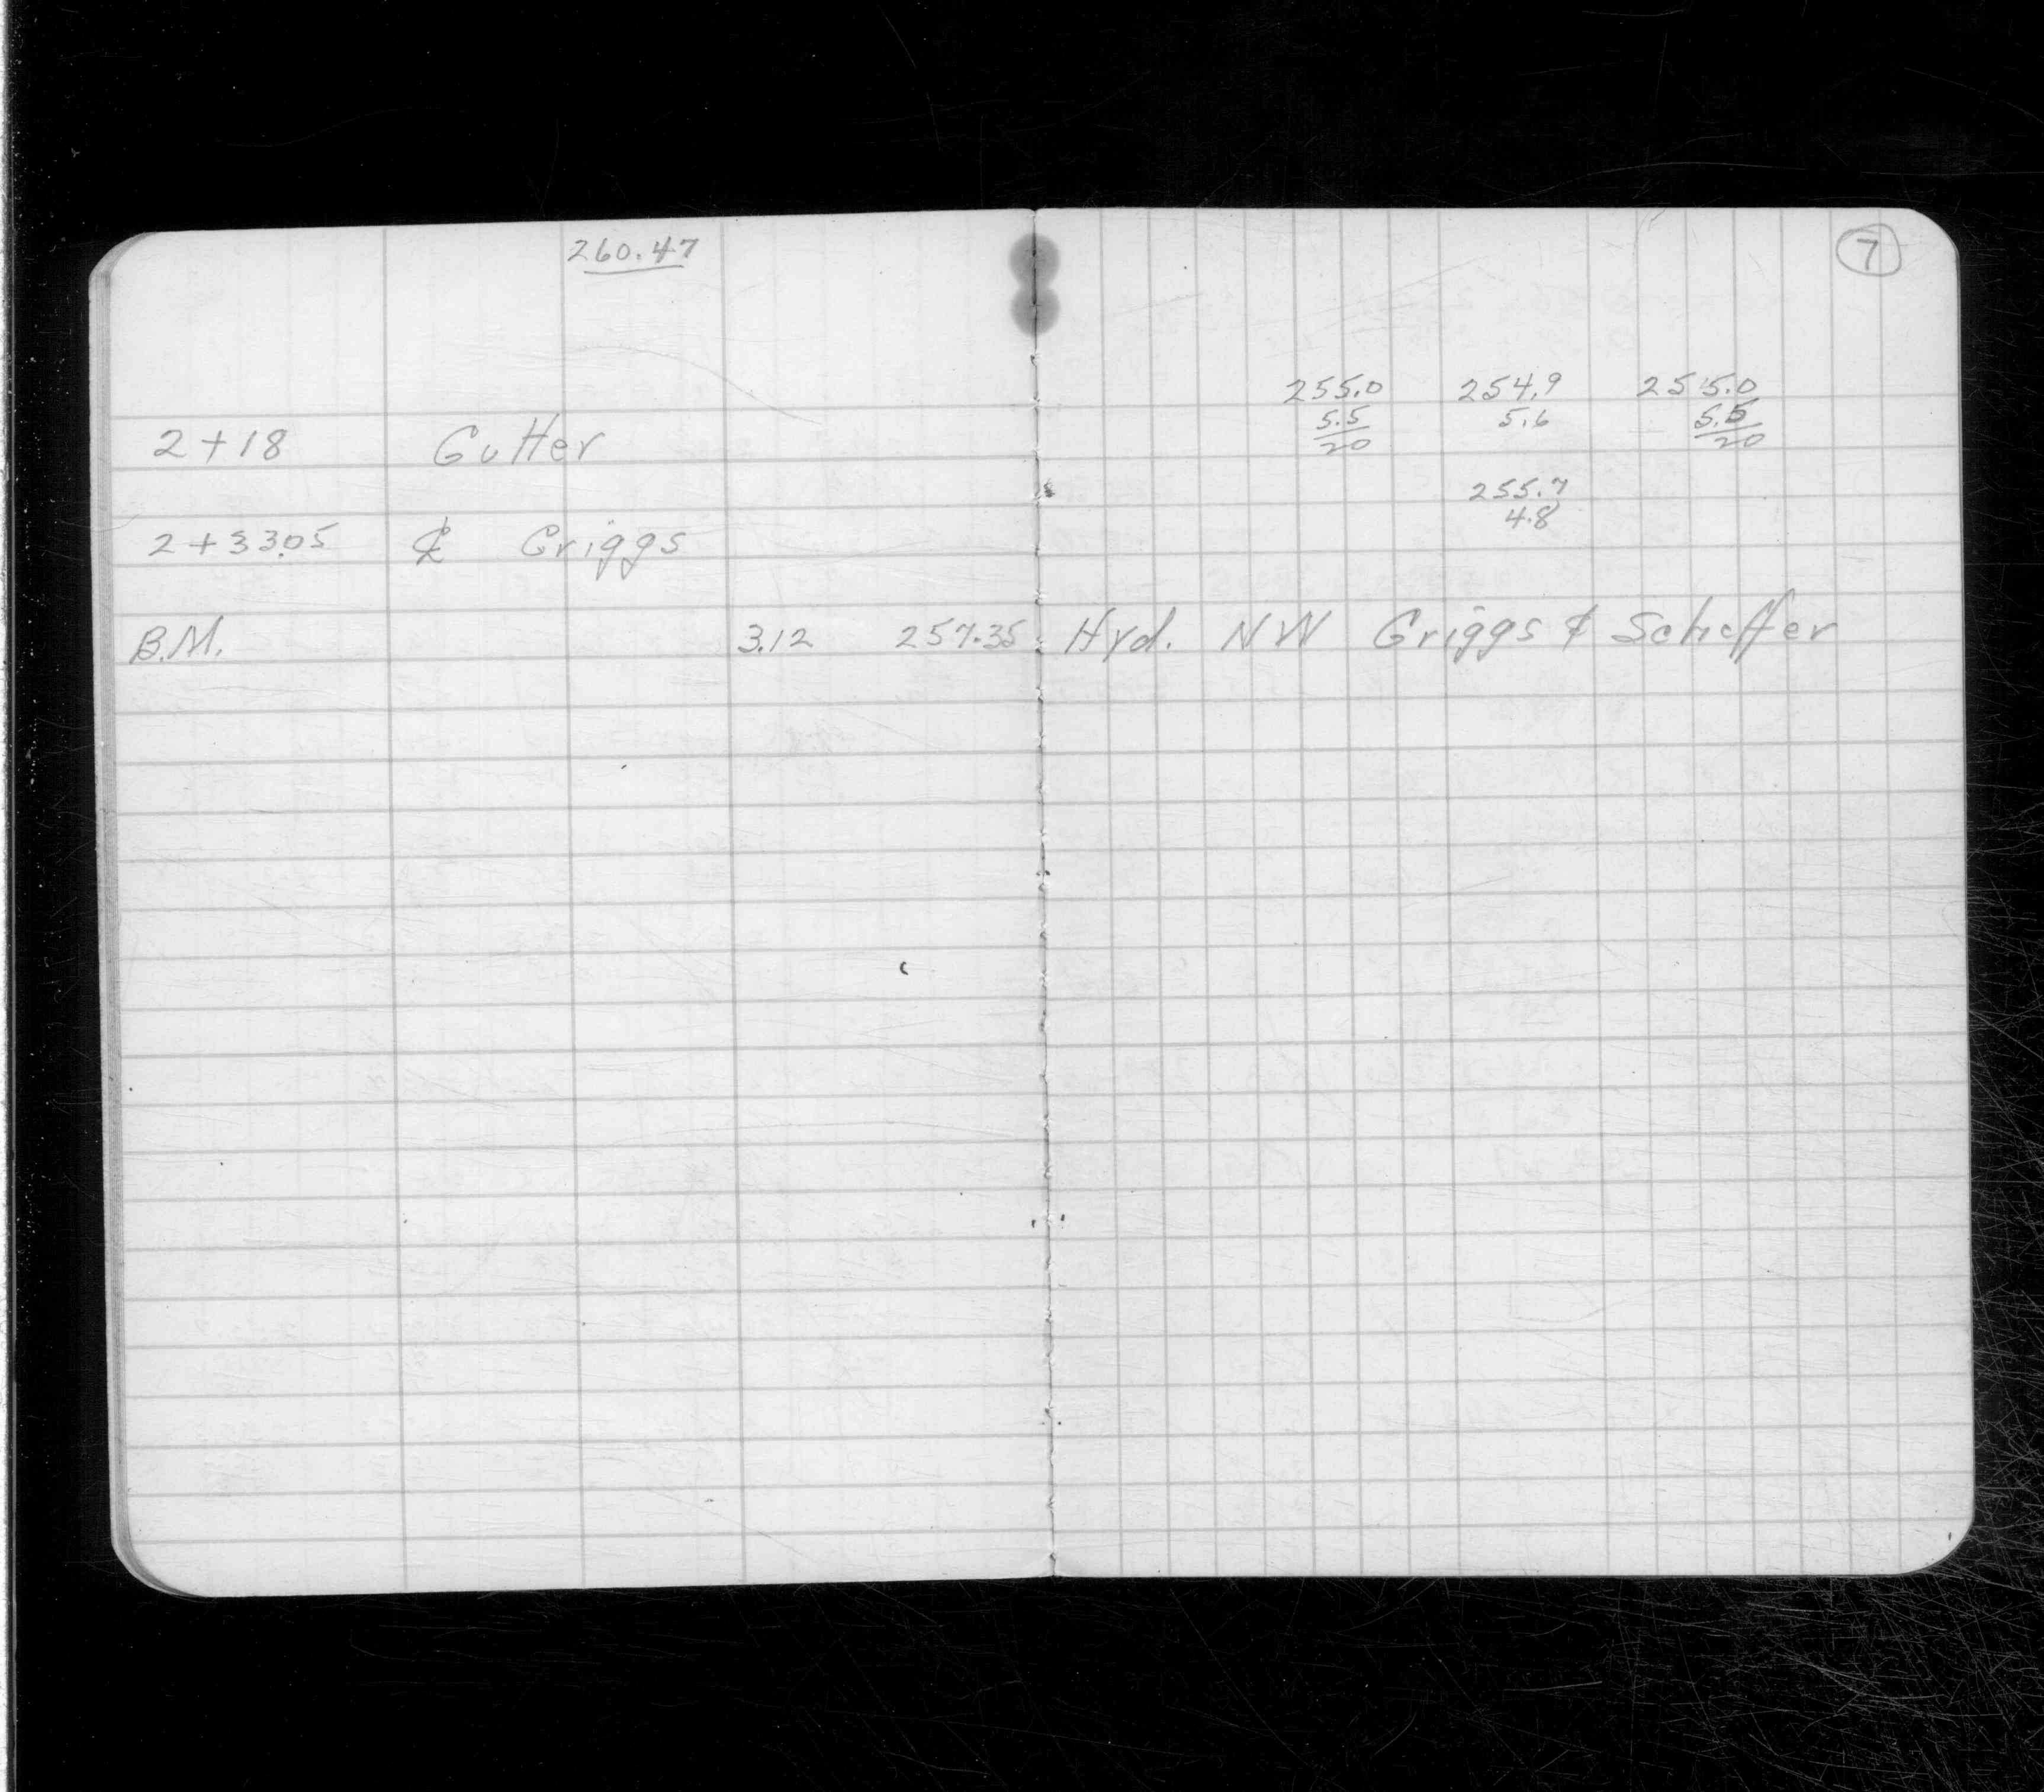 260.47
7
255.0 254.9 255.0
5.5 5.6 5.5
20 20
2+18 Gutter
255.7
4.8
2+33.05 ℄ Griggs
B.M. 3.12 257.35 Hyd. NW Griggs & Scheffer